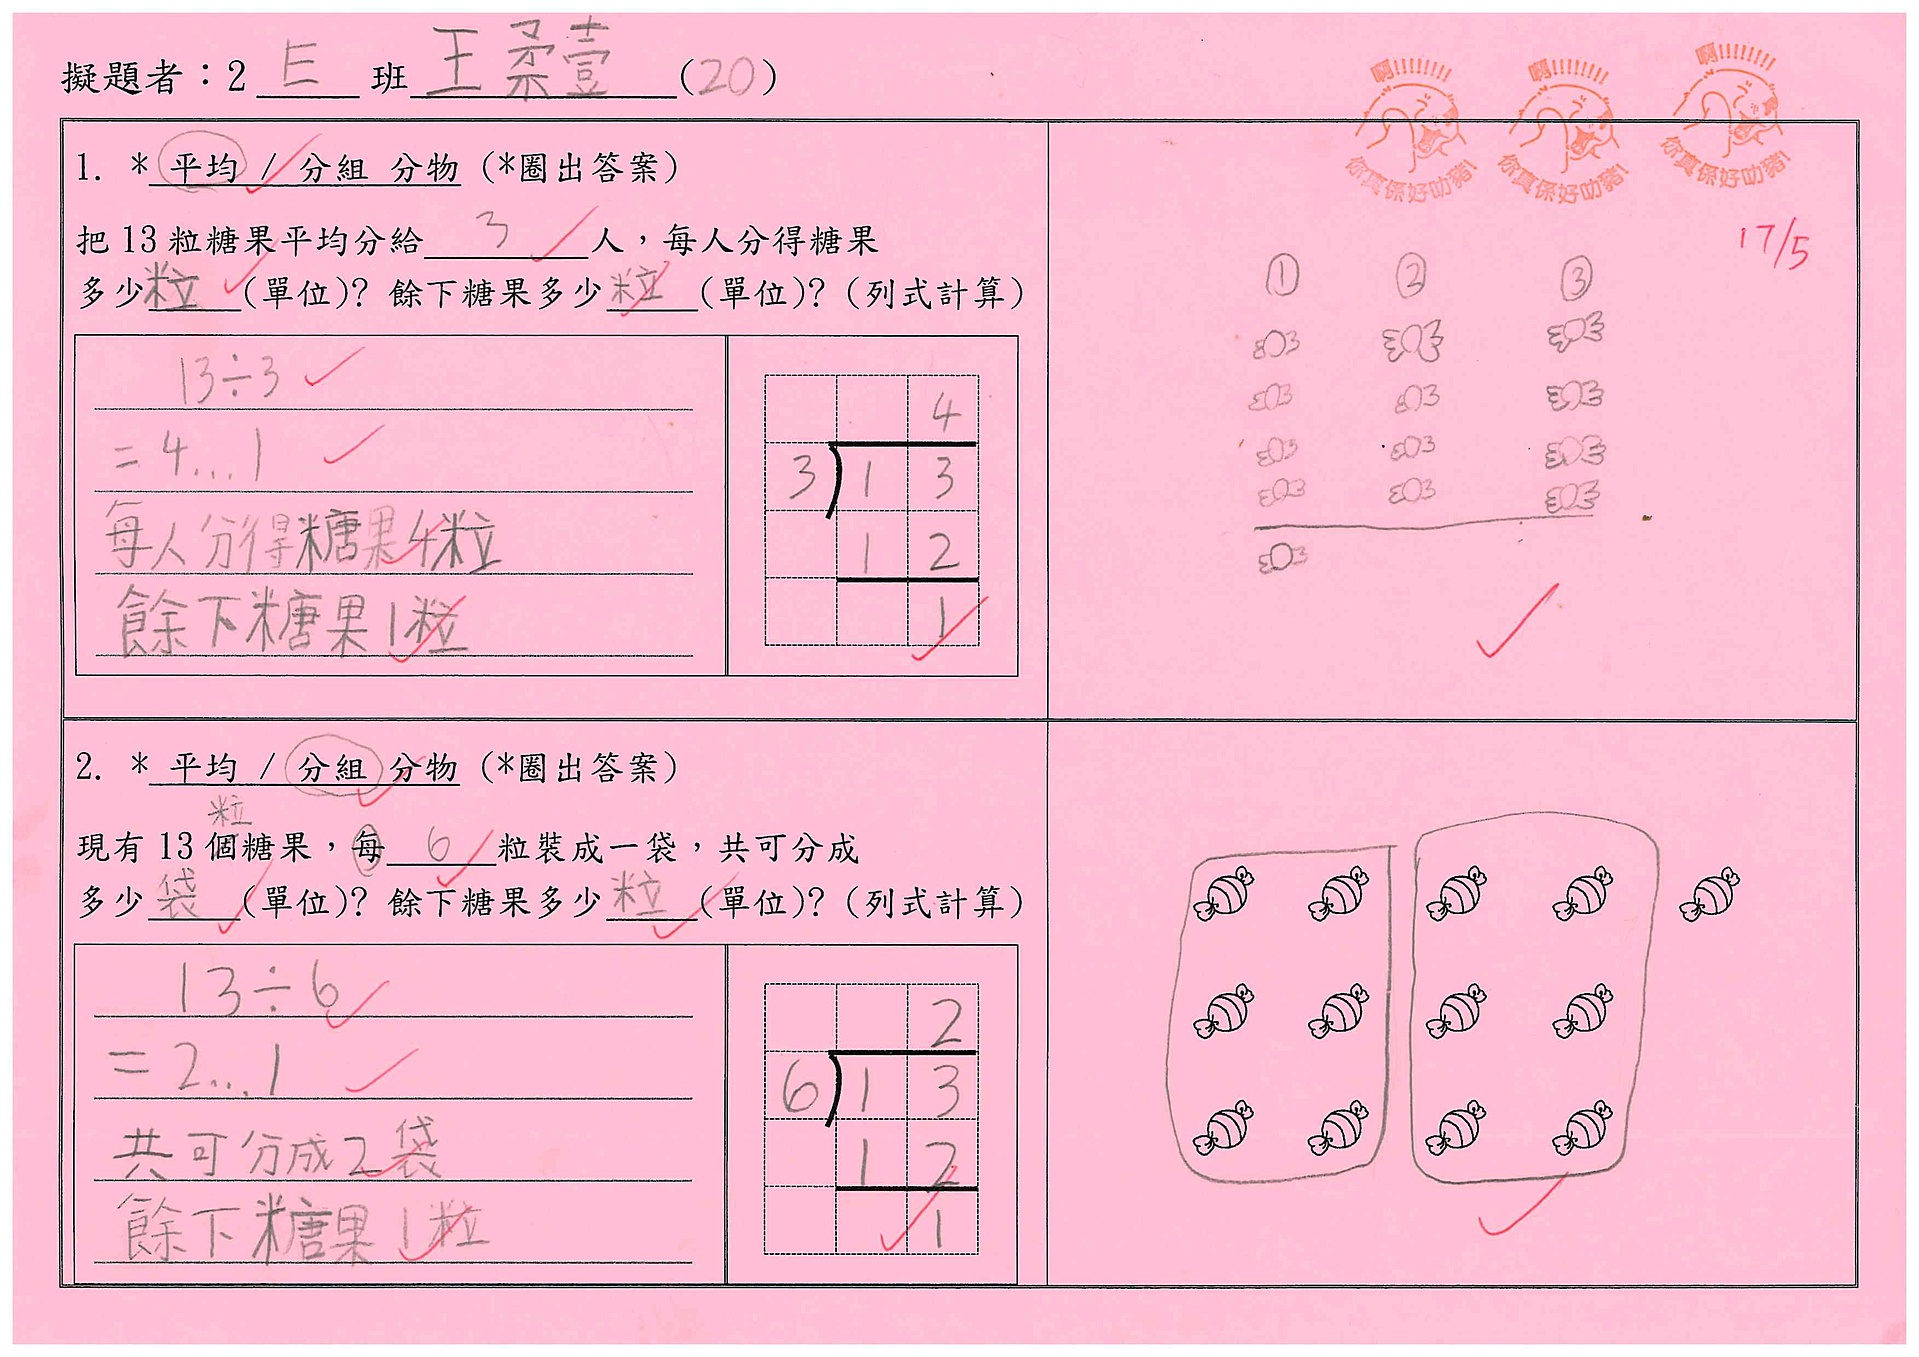 擬題者：2 E 班 王柔壹 (20)
啊!!!!!!!! 你真係好叻豬!
啊!!!!!!!! 你真係好叻豬!
啊!!!!!!!! 你真係好叻豬!
17/5
1. * 平均 / 分組 分物 (*圈出答案)
把 13 粒糖果平均分給 3 人，每人分得糖果
多少粒 (單位)? 餘下糖果多少粒 (單位)? (列式計算)
13÷3
= 4...1
每人分得糖果4粒
餘下糖果1粒
4
3 1 3
1 2
1
① ② ③
2. * 平均 / 分組 分物 (*圈出答案)
粒
現有 13 個糖果，每 6 粒裝成一袋，共可分成
多少 袋 (單位)? 餘下糖果多少 粒 (單位)? (列式計算)
13÷6
= 2...1
共可分成2袋
餘下糖果1粒
2
6 1 3
1 2
1